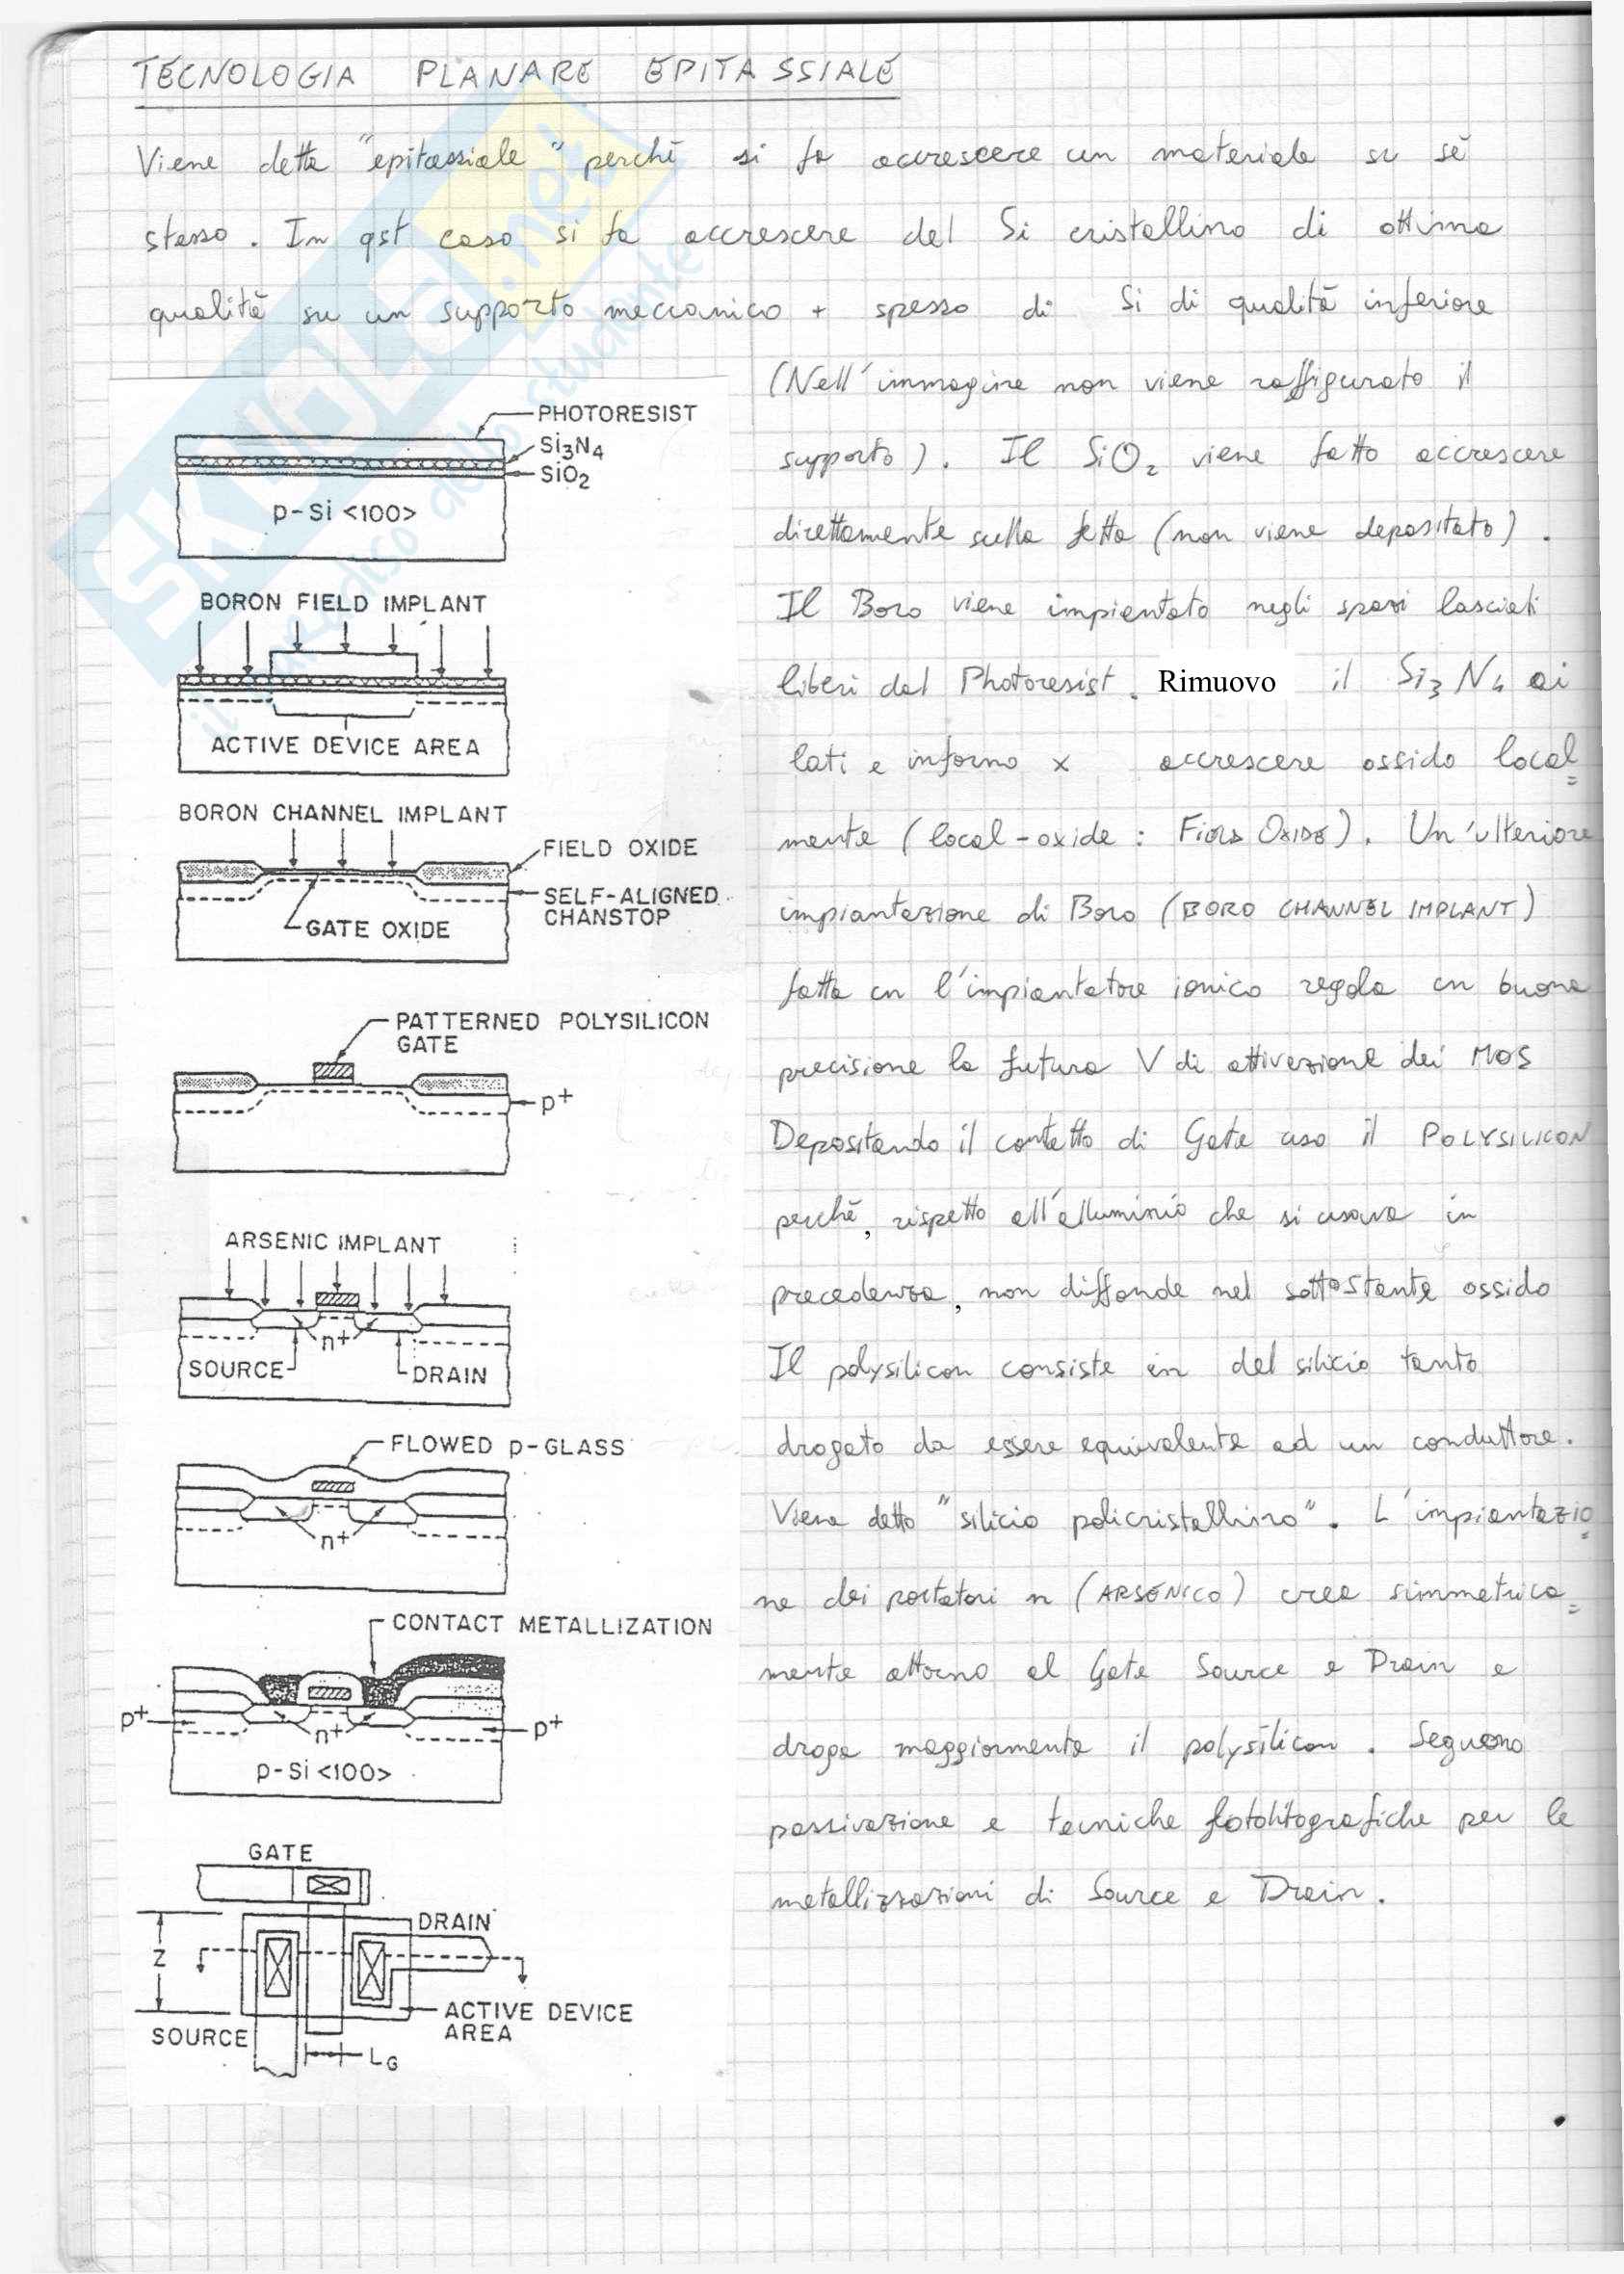 TECNOLOGIA PLANARE EPITASSIALE
Viene detta "epitassiale" perchè si fa accrescere un materiale su sè
stesso. In qst caso si fa accrescere del Si cristallino di ottima
qualità su un supporto meccanico + spesso di Si di qualità inferiore
(Nell'immagine non viene raffigurato il
supporto). Il SiO2 viene fatto accrescere
direttamente sulla fetta (non viene depositato).
Il Boro viene impiantato negli spazi lasciati
liberi dal Photoresist. Rimuovo il Si3N4 ai
lati e inforno x accrescere ossido local=
mente (local-oxide: FIELD OXIDE). Un'ulteriore
impiantazione di Boro (BORO CHANNEL IMPLANT)
fatta cn l'impiantatore ionico regola cn buona
precisione la futura V di attivazione dei MOS
Depositando il contatto di Gate uso il POLYSILICON
perchè, rispetto all'alluminio che si usava in
precedenza, non diffonde nel sottostante ossido
Il polysilicon consiste in del silicio tanto
drogato da essere equivalente ad un conduttore.
Viene detto "silicio policristallino". L'impiantazio=
ne dei portatori n (ARSENICO) crea simmetrica=
mente attorno al Gate Source e Drain e
droga maggiormente il polysilicon. Seguono
passivazione e tecniche fotolitografiche per le
metallizzazioni di Source e Drain.
PHOTORESIST
Si3N4
SiO2
p-Si <100>
BORON FIELD IMPLANT
ACTIVE DEVICE AREA
BORON CHANNEL IMPLANT
FIELD OXIDE
SELF-ALIGNED
CHANSTOP
GATE OXIDE
PATTERNED POLYSILICON
GATE
p+
ARSENIC IMPLANT
n+
SOURCE
DRAIN
FLOWED p-GLASS
n+
CONTACT METALLIZATION
p+
n+
p+
p-Si <100>
GATE
DRAIN
Z
ACTIVE DEVICE
AREA
SOURCE
LG
SKUOLA.net
il paradiso dello studente